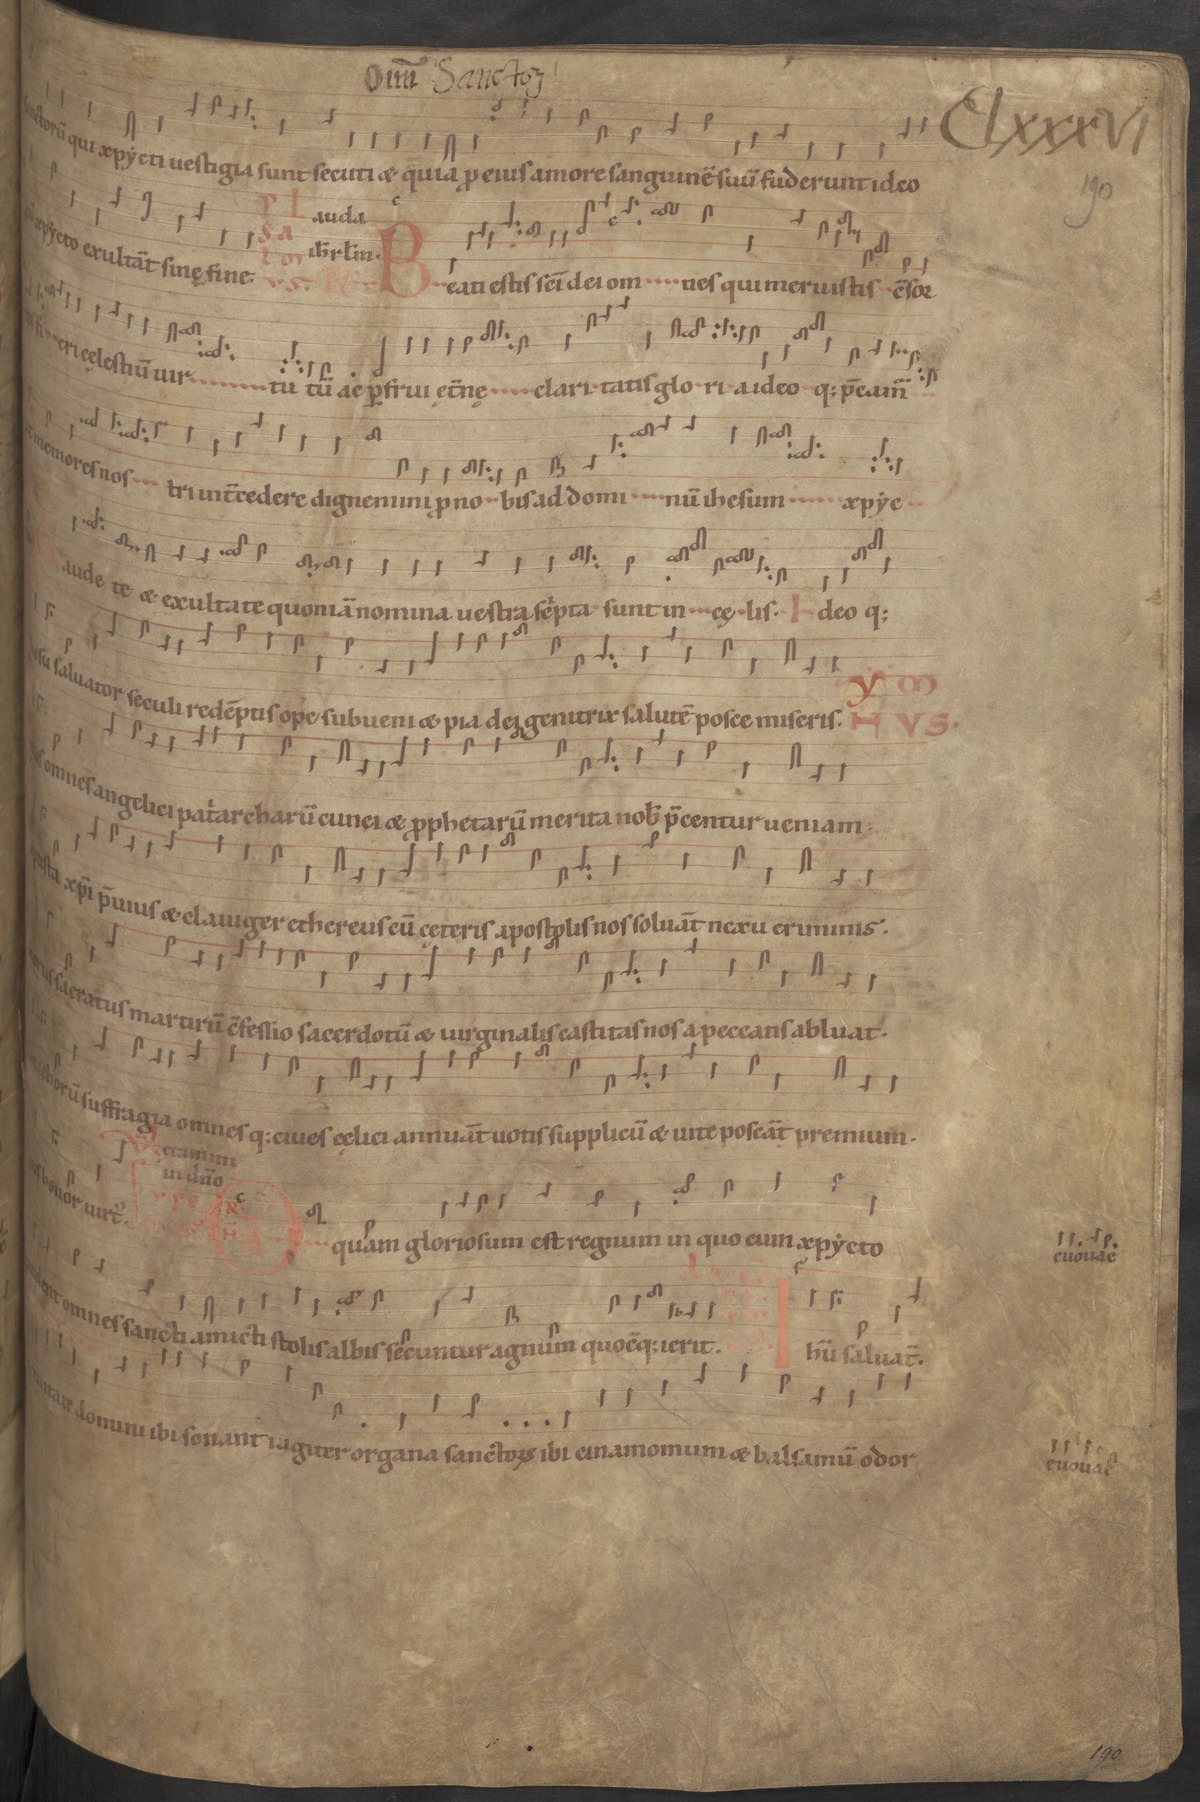 Om̄ Sanctoꝝ
ClxxxVI
190
sanctorū qui xpÿcti uestigia sunt secuti æ quia ꝓ eius amore sanguinē suū fuderunt ideo
xpÿcto exultāt sinę fine. PSALMVS. Lauda ih̄rl̄m.
Beati estis sc̄i dei om nes qui meruistis c̄sor
eri cęlestiū uir tu tū ac ꝑfrui ęt̄nę clari tatis glo ri a ideo q; p̄cam̄
memores nos tri int̄cedere dignemini ꝓ no bis ad domi nū ihesum xpÿc
Gaude te æ exultate quoniā nomina uestra sc̄pta sunt in cę lis. I deo q;
Iesu saluator seculi redēptis ope subueni æ pia dei genitrix salutē posce miseris. YMHVS.
omnes angelici pat̄archarū cunei æ ꝓphetarū merita nob̄ p̄centur ueniam.
xp̄i p̄uius æ clauiger ethereus cū cęteris apostolis nos soluāt nexu criminis.
Chorus sacratus martirū c̄fessio sacerdotū æ uirginalis castitas nos a peccatis abluat.
monachorū suffragia omnes q; ciues cęlici annuāt uotis supplicū æ uite poscāt premium.
honor uirt̄. ℣ Letamini in dn̄o
O quam gloriosum est regnum in quo cum xpÿcto
euouae
gaudent omnes sancti amicti stolis albis secuntur agnum quocq; ierit. I hū saluat̄.
ciuitate domini ibi sonant iugiter organa sanctoꝝ ibi cinamomum æ balsamū odor
euouae
190